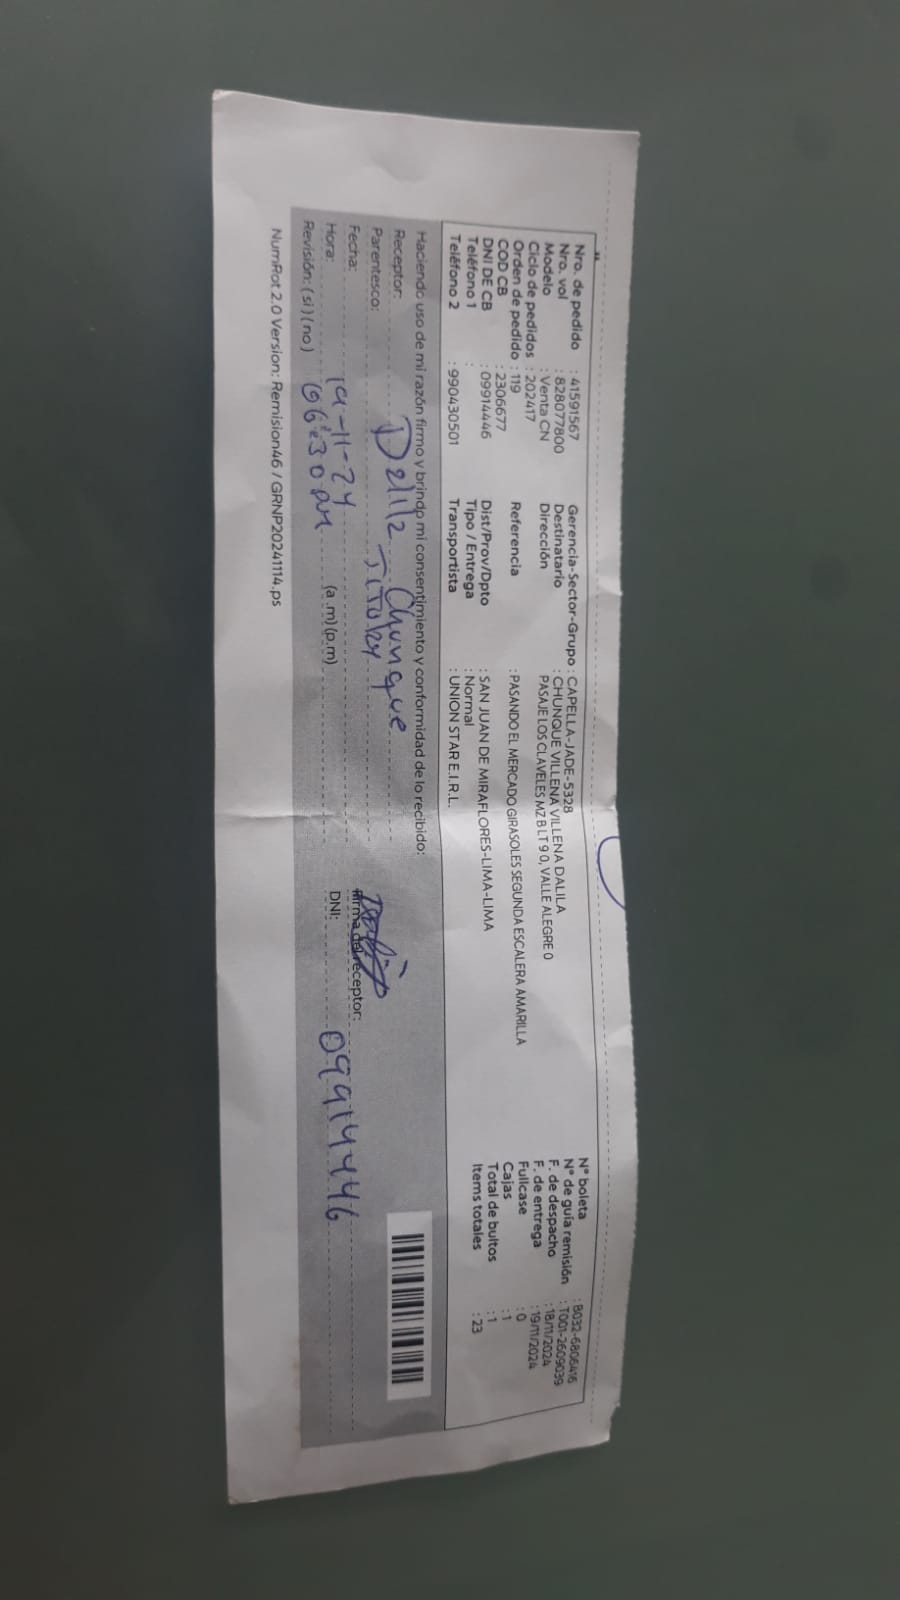 Nro. de pedido : 41591567 Gerencia-Sector-Grupo : CAPELLA-JADE-5328 N° boleta : B032-6806416
Nro. vol : 828077800 Destinatario : CHUNQUE VILLENA VILLENA DALILA N° de guía remisión : T001-2609039
Modelo : Venta CN Dirección PASAJE LOS CLAVELES MZ B LT 9 0, VALLE ALEGRE 0 F. de despacho : 18/11/2024
Ciclo de pedidos : 202417 F. de entrega : 19/11/2024
Orden de pedido : 119 Referencia : PASANDO EL MERCADO GIRASOLES SEGUNDA ESCALERA AMARILLA Fullcase : 0
COD CB : 2306677 Cajas : 1
DNI DE CB : 09914446 Dist/Prov/Dpto : SAN JUAN DE MIRAFLORES-LIMA-LIMA Total de bultos : 1
Teléfono 1 : Tipo / Entrega : Normal Items totales : 23
Teléfono 2 : 990430501 Transportista : UNION STAR E.I.R.L.
Haciendo uso de mi razón firmo y brindo mi consentimiento y conformidad de lo recibido:
Receptor: Chunque
Parentesco: Titular
Fecha: 19-11-24 Firma del receptor:
Hora: 06:30 pm (a.m)(p.m) DNI: 09914446
Revisión: (si)(no)
NumRot 2.0 Version: Remision46 / GRNP20241114.ps